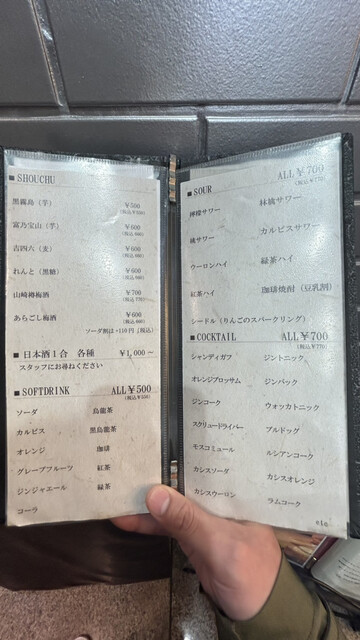 ■ SHOUCHU
黒霧島（芋） ¥500
(税込¥550)
富乃宝山（芋） ¥600
(税込 660)
吉四六（麦） ¥600
(税込 660)
れんと（黒糖） ¥600
(税込 660)
山崎樽梅酒 ¥700
(税込 770)
あらごし梅酒 ¥600
(税込 660)
ソーダ割は+110円（税込）
■ 日本酒1合 各種 ¥1,000～
スタッフにお尋ねください
■ SOFTDRINK ALL¥500
(税込¥550)
ソーダ 烏龍茶
カルピス 黒烏龍茶
オレンジ 珈琲
グレープフルーツ 紅茶
ジンジャエール 緑茶
コーラ
■ SOUR ALL¥700
(税込¥770)
檸檬サワー 林檎サワー
桃サワー カルピスサワー
ウーロンハイ 緑茶ハイ
紅茶ハイ 珈琲焼酎（豆乳割）
シードル（りんごのスパークリング）
■ COCKTAIL ALL¥700
(税込¥770)
シャンディガフ ジントニック
オレンジブロッサム ジンバック
ジンコーク ウォッカトニック
スクリュードライバー ブルドッグ
モスコミュール ルシアンコーク
カシスソーダ カシスオレンジ
カシスウーロン ラムコーク
etc